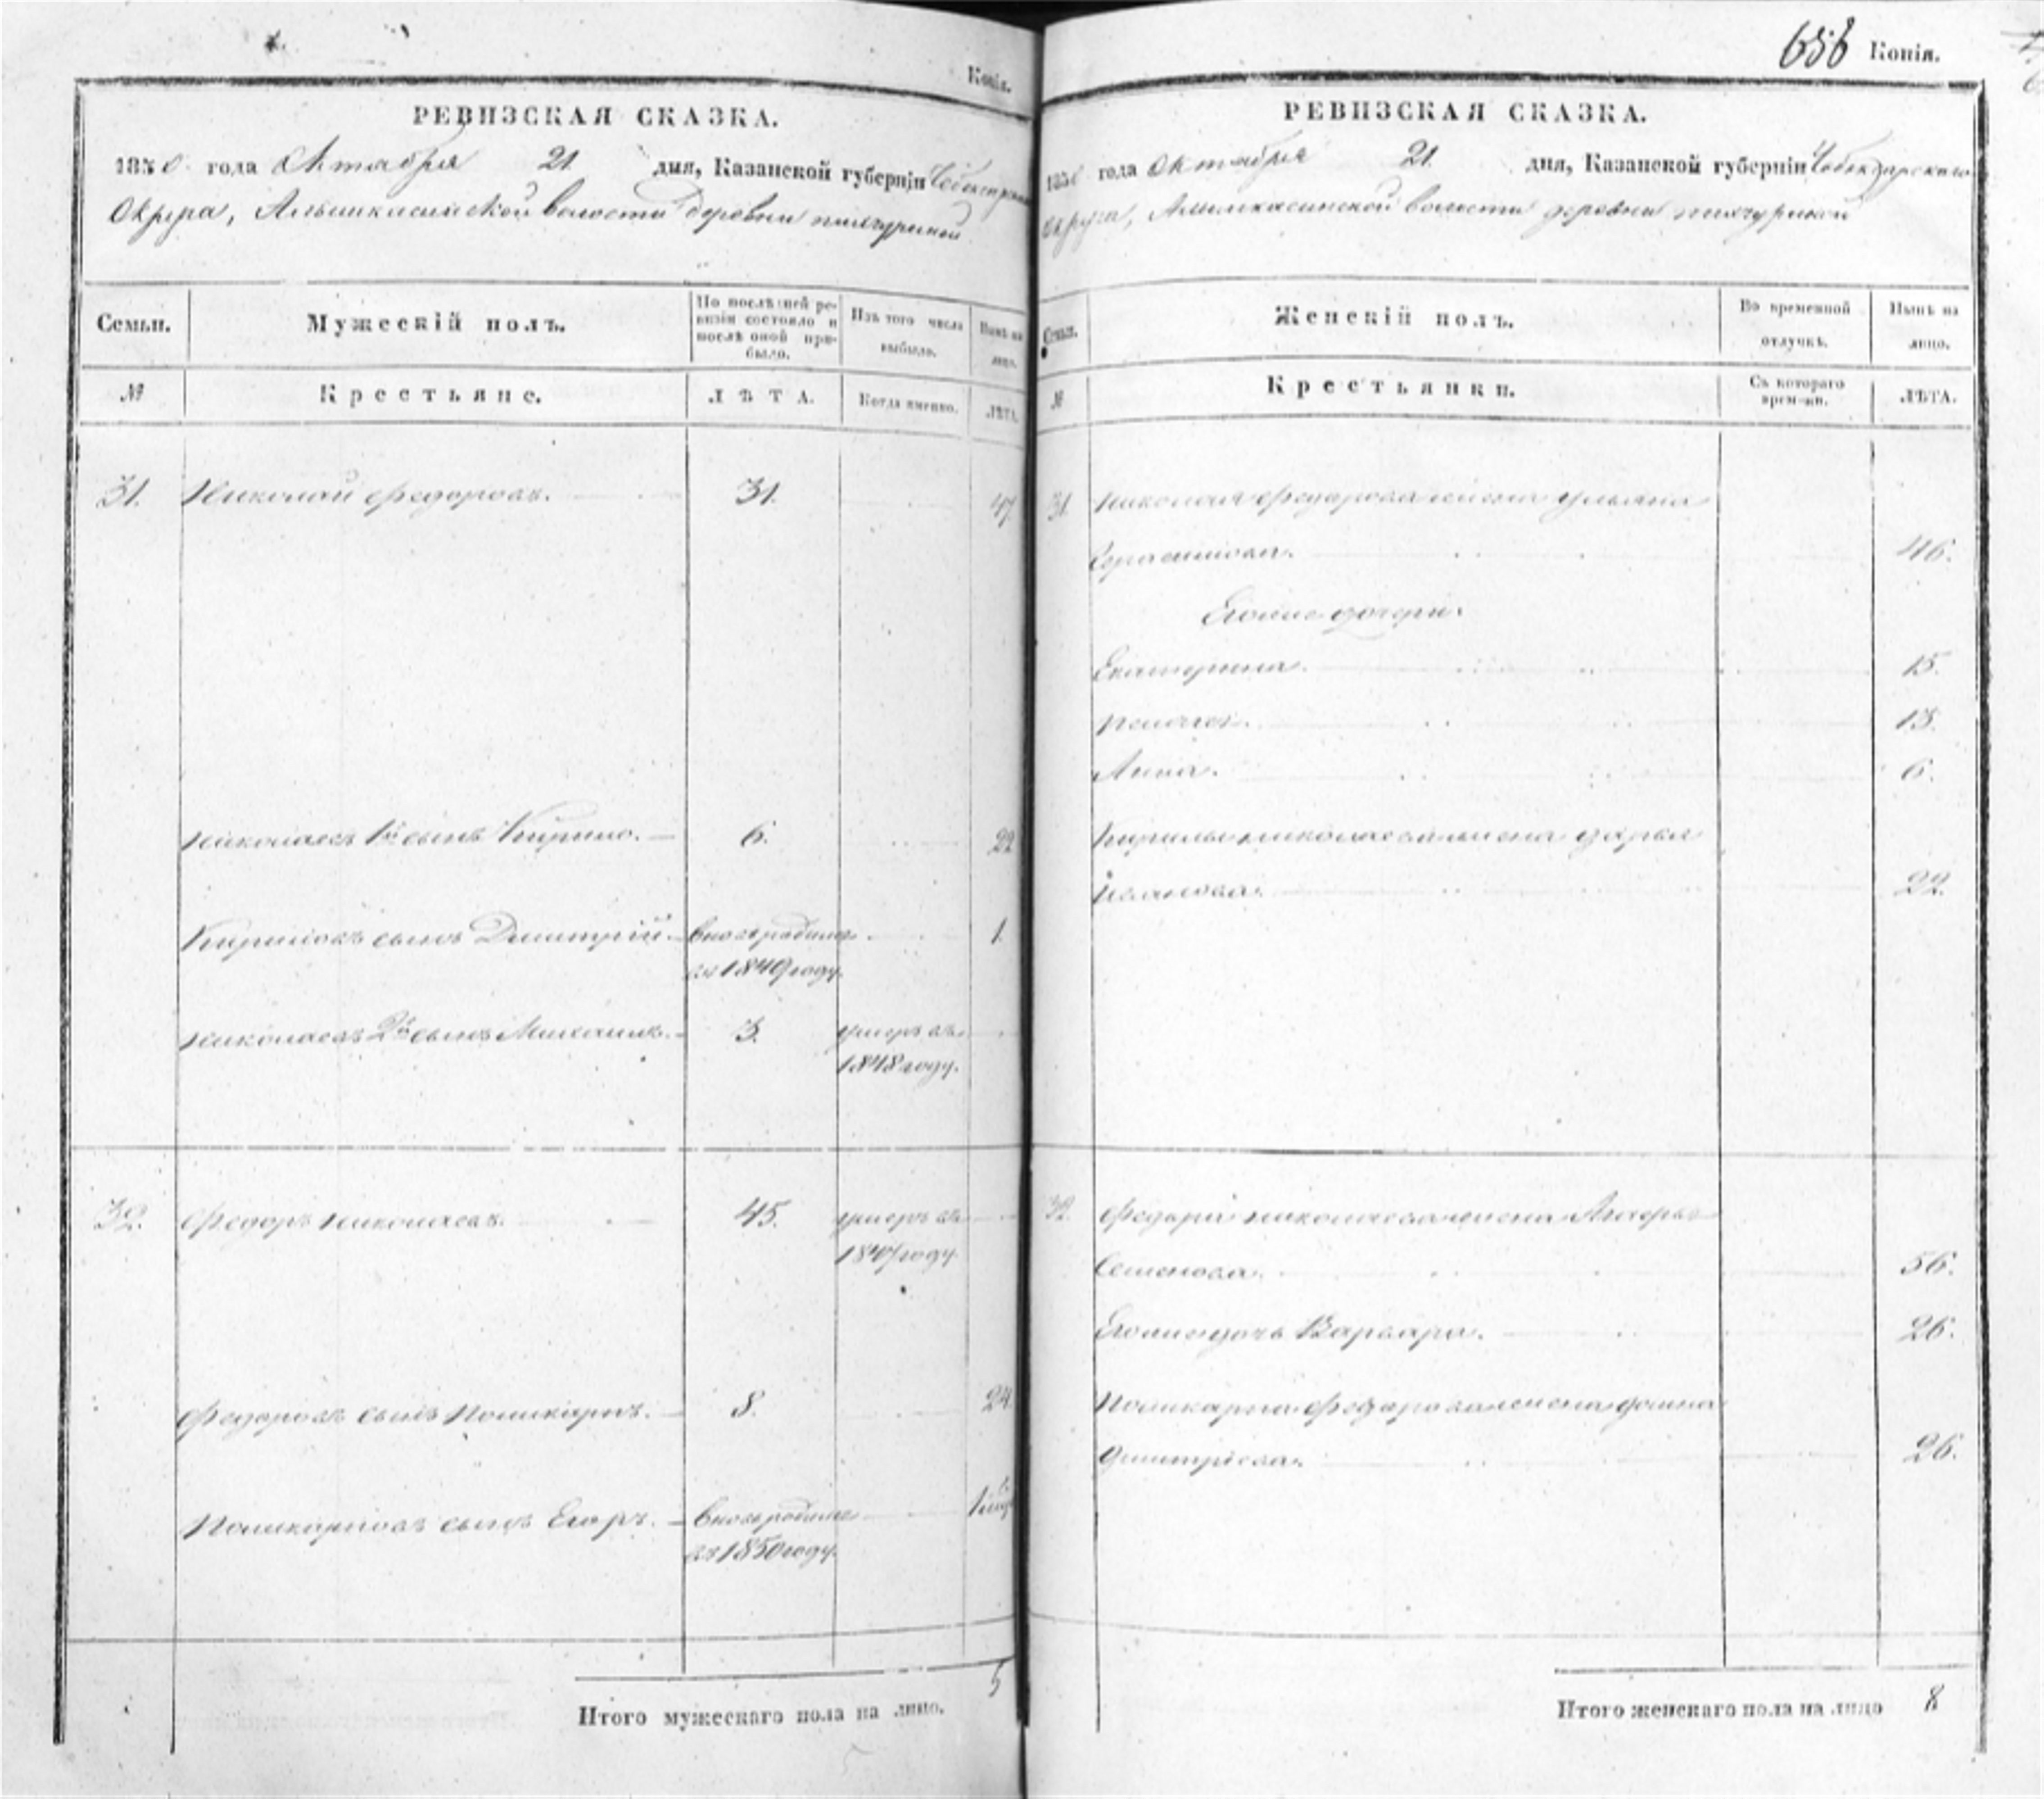 Копія.
РЕВИЗСКАЯ СКАЗКА.
1850 года Октября 21 дня, Казанской губерніи
Округа, волости деревни
Семьи. Мужескій полъ. По послѣдней ревизіи состояло и послѣ оной прибыло. Изъ того числа выбыло. Нынѣ на лицо.
№ Крестьяне. ЛѢТА. Когда именно. ЛѢТА.
31. Николай Федоровъ. 31. 47.
Николаевъ 1й сынъ Кирило. 6. 22
Кириловъ сынъ Димитрій. вновь рожденъ 1.
въ 1849 году.
Николаевъ 2й сынъ Михаилъ. 3. умеръ въ
1848 году.
32. Федоръ Николаевъ. 45. умеръ въ
году
Федоровъ сынъ Поликарпъ. 8. 24.
Поликарповъ сынъ Егоръ. вновь рожденъ
въ 1850 году.
5
Итого мужескаго пола на лицо.
656 Копія.
РЕВИЗСКАЯ СКАЗКА.
1850 года Октября 21 дня, Казанской губерніи Чебоксарскаго
Округа, волости деревни
Семьи. Женскій полъ. Во временной отлучкѣ. Нынѣ на лицо.
№ Крестьянки. Съ котораго времени. ЛѢТА.
31. Николая Федорова жена Ульяна
Герасимова. 46.
Егоже дочери:
Екатерина. 15.
13.
Анна. 6.
Кирилы Николаева жена Дарья
Иванова. 22.
32. Федора Николаева жена
Семенова. 56.
Егоже дочь Варвара. 26.
Поликарпа Федорова жена
Димитріева. 26.
Итого женскаго пола на лицо 8